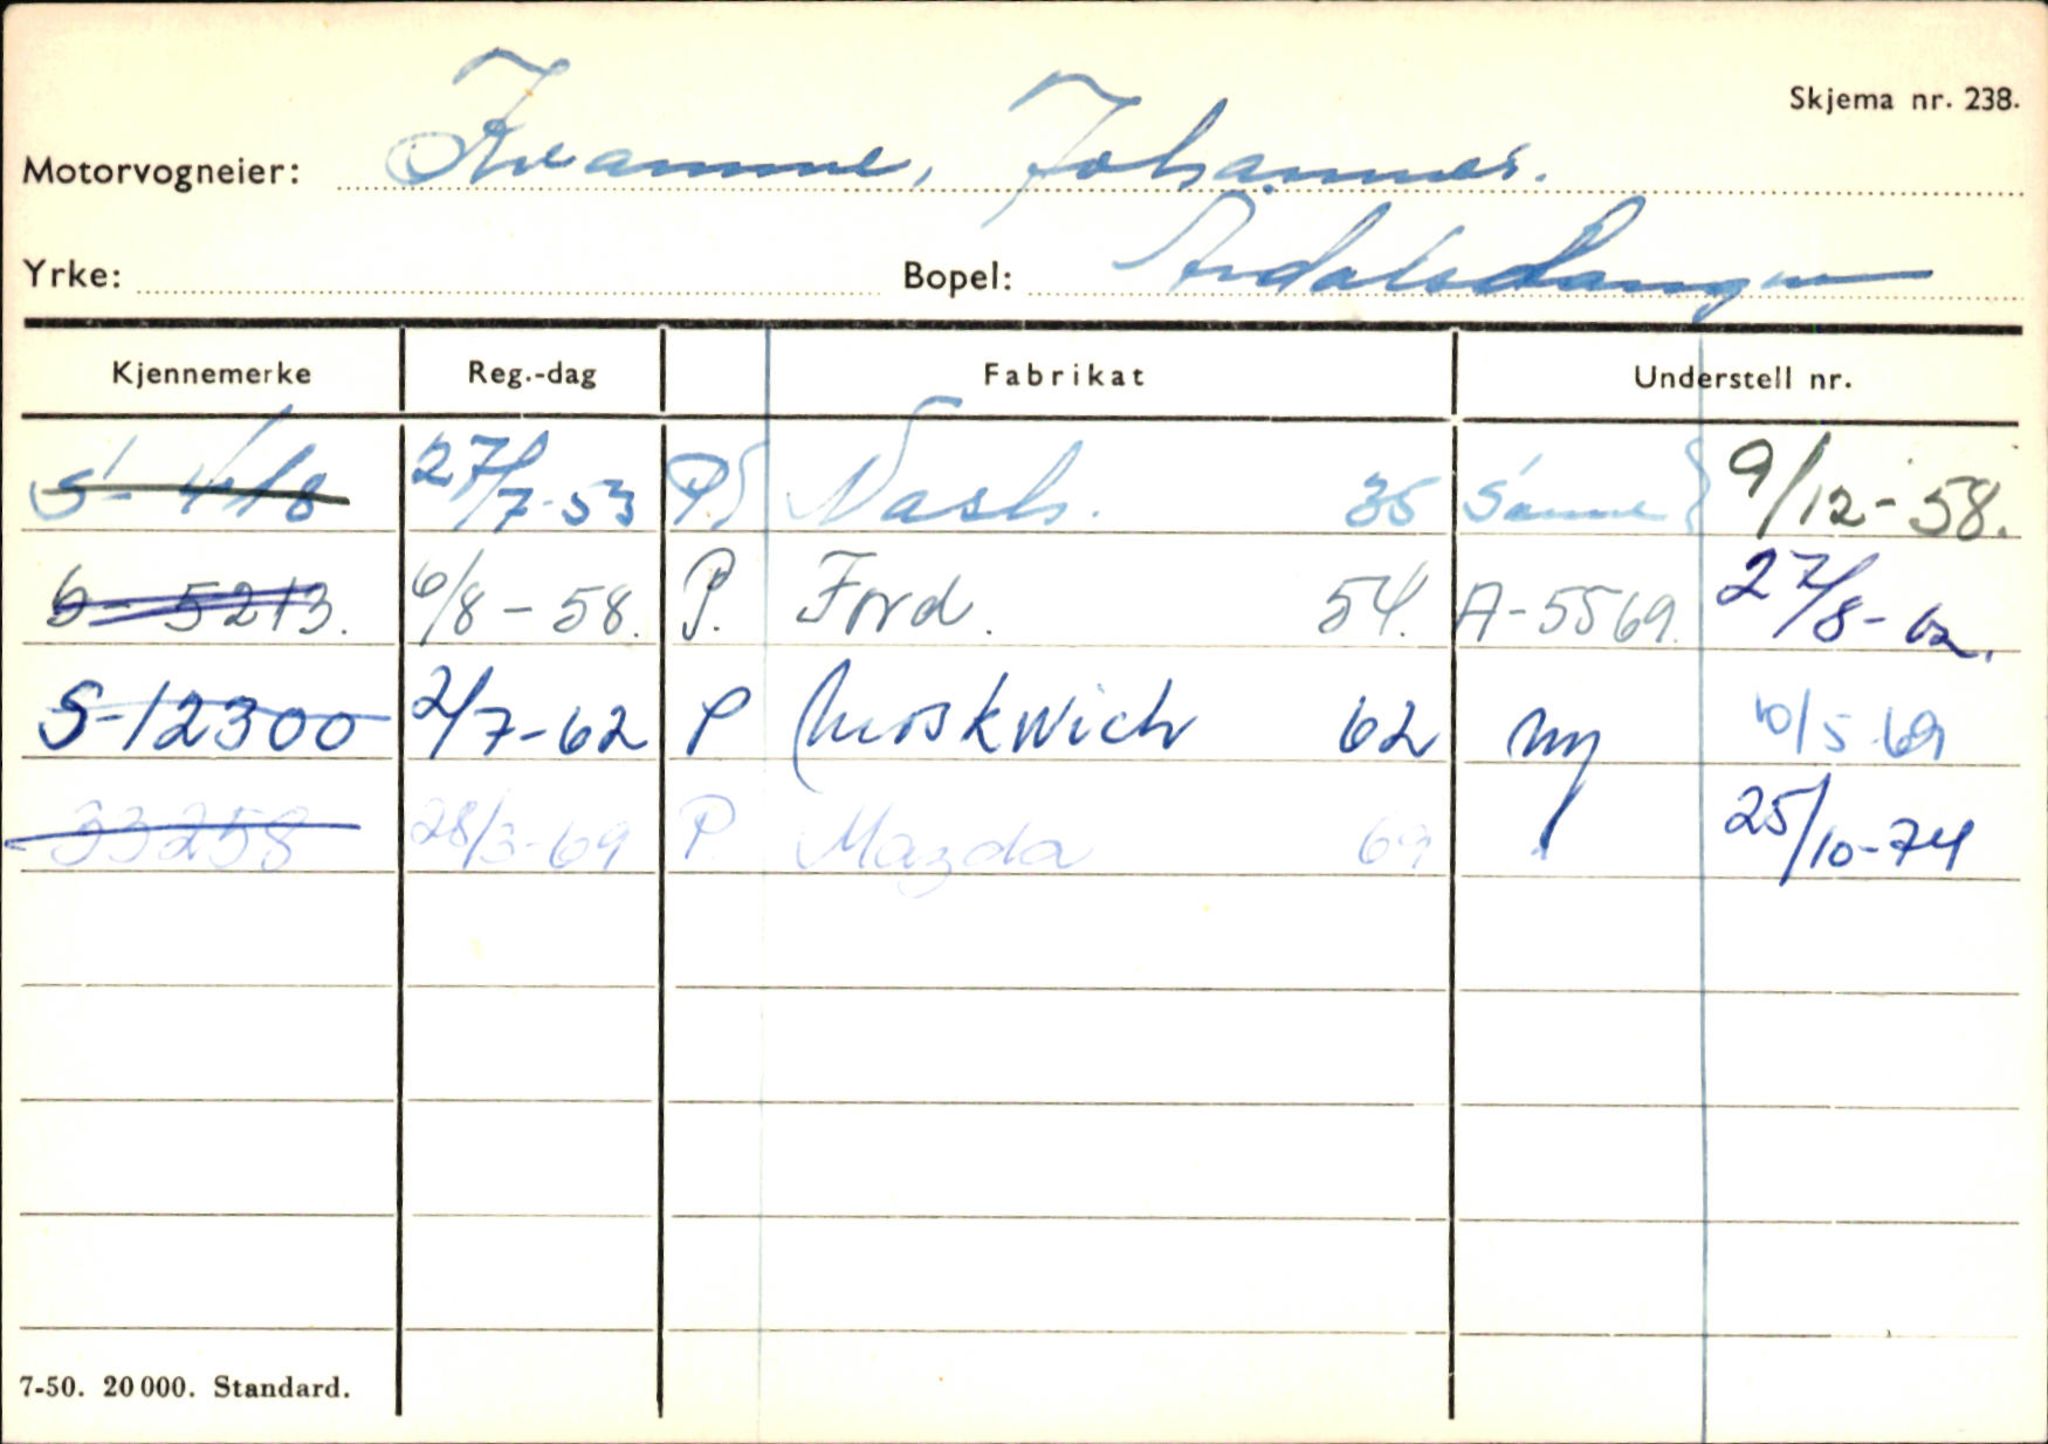 Skjema nr. 238.
Motorvogneier: Kvamme, Johannes.
Yrke: Bopel: Årdalstangen
Kjennemerke Reg.-dag Fabrikat Understell nr.
S-418 27/7-53 P. Nash. 35 Samme 9/12-58.
S-5213. 6/8-58. P. Ford. 54. A-5569. 27/8-62.
S-12300 2/7-62 P Moskwich 62 ny 10/5-69
33258 28/3-69 P. Mazda 69 25/10-74
7-50. 20 000. Standard.